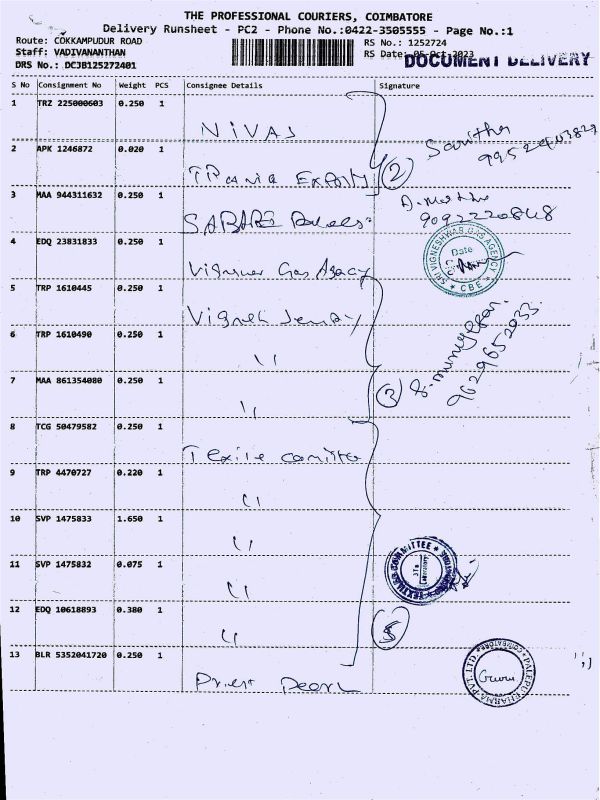 THE PROFESSIONAL COURIERS, COIMBATORE
Delivery Runsheet - PC2 - Phone No.:0422-3505555 - Page No.:1
Route: COKKAMPUDUR ROAD
RS No.: 1252724
Staff: VADIVANANTHAN
RS Date: 05-Oct-2023
DOCUMENT DELIVERY
DRS No.: DCJB125272401
S No Consignment No Weight PCS Consignee Details Signature
1 TRZ 225000603 0.250 1
NIVAS
2 APK 1246872 0.020 1
②
3 MAA 944311632 0.250 1
SABARI
9092220848
4 EDQ 23831833 0.250 1
Vigneswar Gas Agency
SRI VIGNESHWAR GAS AGENCY
Date
CBE
5 TRP 1610445 0.250 1
Vignesh
6 TRP 1610490 0.250 1
"
9629652033
7 MAA 861354080 0.250 1
"
③
8 TCG 50479582 0.250 1
Textile committee
9 TRP 4470727 0.220 1
"
10 SVP 1475833 1.650 1
"
11 SVP 1475832 0.075 1
"
TEXTILES COMMITTEE
Laboratory
12 EDQ 10618893 0.380 1
"
⑤
13 BLR 5352041720 0.250 1
PALEPU PHARMA PVT. LTD.
COIMBATORE